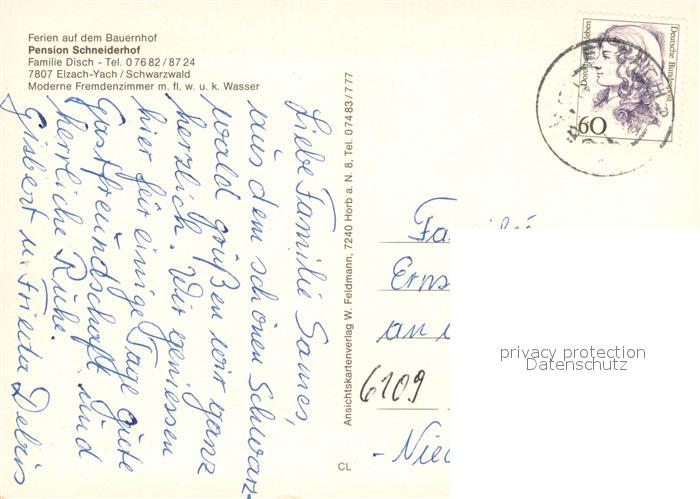 Ferien auf dem Bauernhof
Pension Schneiderhof
Familie Disch - Tel. 0 76 82 / 87 24
7807 Elzach-Yach / Schwarzwald
Moderne Fremdenzimmer m. fl. w. u. k. Wasser
Liebe Familie Sames,
aus dem schönen Schwarz-
wald grüßen wir ganz
herzlich. Wir geniessen
hier für einige Tage gute
Gastfreundschaft und
herrliche Ruhe.
Gisbert u. Frieda
Ansichtskartenverlag W. Feldmann, 7240 Horb a. N. 8, Tel. 0 74 83 / 7 77
CL
Deutsche Bundespost
60
Fa
Erns
an
6109
- Nied
privacy protection
Datenschutz